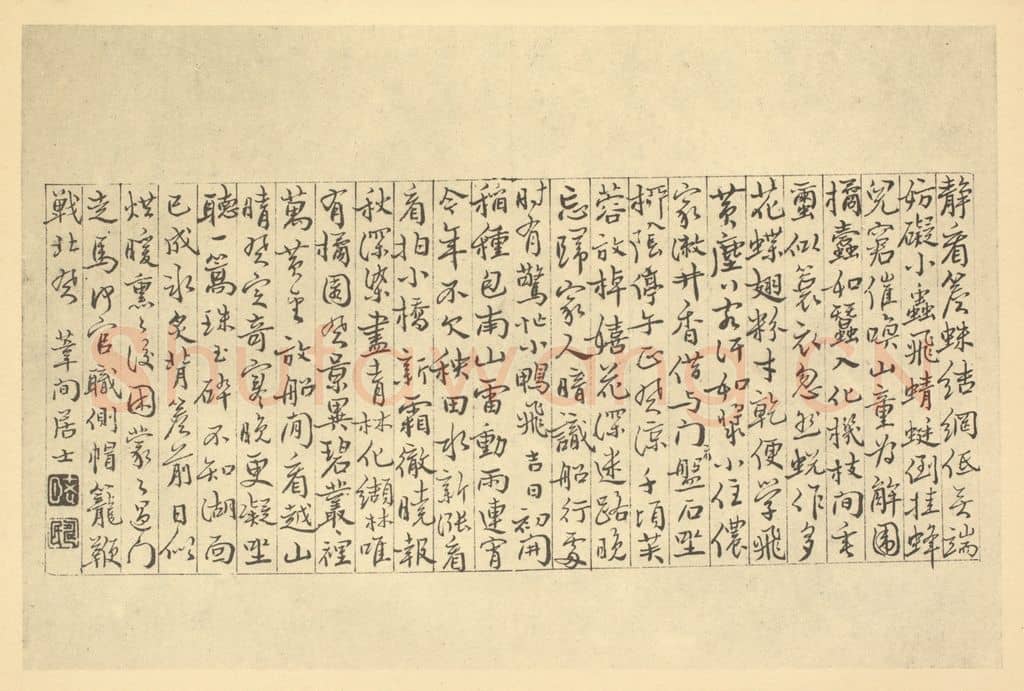 靜看簷蛛結網低無端
妨礙小蟲飛蜻蜓倒挂蜂
兒窘催喚山童為解圍
橘蠹如蠶入化機枝間垂
繭似蓑衣忽然蛻作多
花蝶翅粉才乾便学飛
黄塵行客汗如漿小住儂
家漱井香借与门前盤石坐
柳陰停午正風涼千頃芙
蓉放棹嬉花深迷路晚
忘歸家人暗識船行處
时有驚忙小鴨飛吉日初開
稻種包南山雷動雨連宵
今年不欠秧田水新漲看
看拍小橋新霜徹曉報
秋深染盡青林化纈林唯
有橘園風景異碧叢裡
萬黄金放船閒看越山
晴風定奇寒晚更凝坐
聽一篙珠玉碎不知湖面
已成冰炙背簷前日似
烘暖熏〻後困蒙〻過门
走馬何官職側帽籠鞭
戰北風 葦間居士